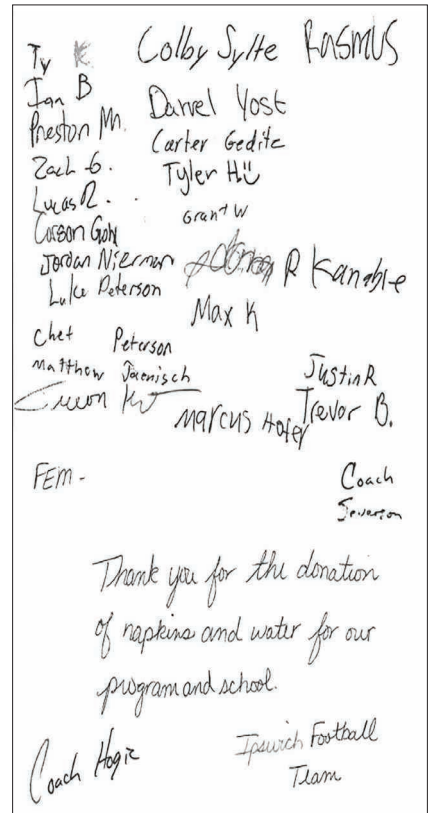 Ty K Colby Sylte Rasmus
Ian B
Preston Mn. Daniel Yost
Carter Geditz
Zach G. Tyler H
Lucas R.
Grant W
Carson Gohl
Jordan Nierman R Kanable
Luke Peterson
Max K
Chet Peterson
Matthew Jaenisch Justin R
Marcus Hofer Trevor B.
FEM - Coach
Severson
Thank you for the donation
of napkins and water for our
program and school.
Coach Hogie
Ipswich Football
Team